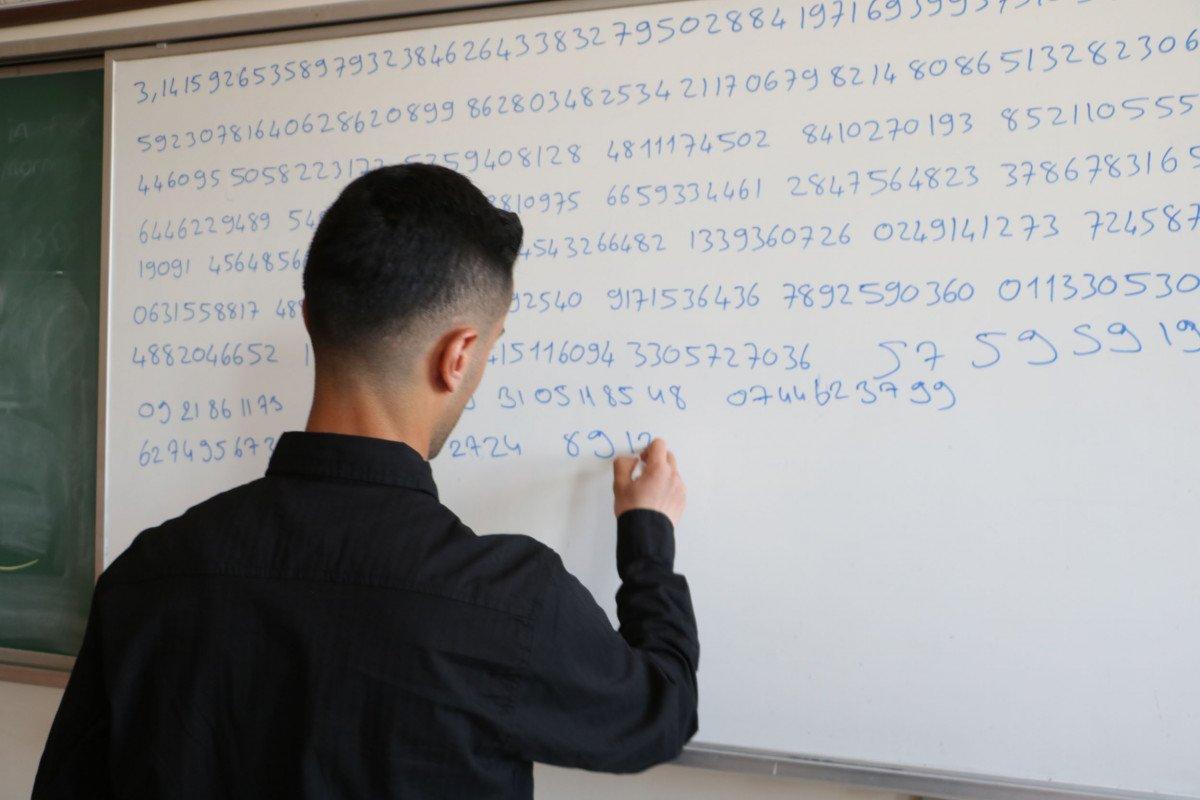 3,141592653589793238462643383279502884197169399375
592307816406286208998628034825342117067982148086513282306
44609550582231725359408128 4811174502 8410270193 852110555
6446229489 54 8810975 6659334461 2847564823 378678316
19091 456485 4543266482 1339360726 0249141273 724587
0631558817 48 92540 9171536436 7892590360 011330530
4882046652 1 415116094 3305727036 57 59 59 19
09 21 86 1173 31 05 11 85 48 07446 23799
627495673 2724 8912